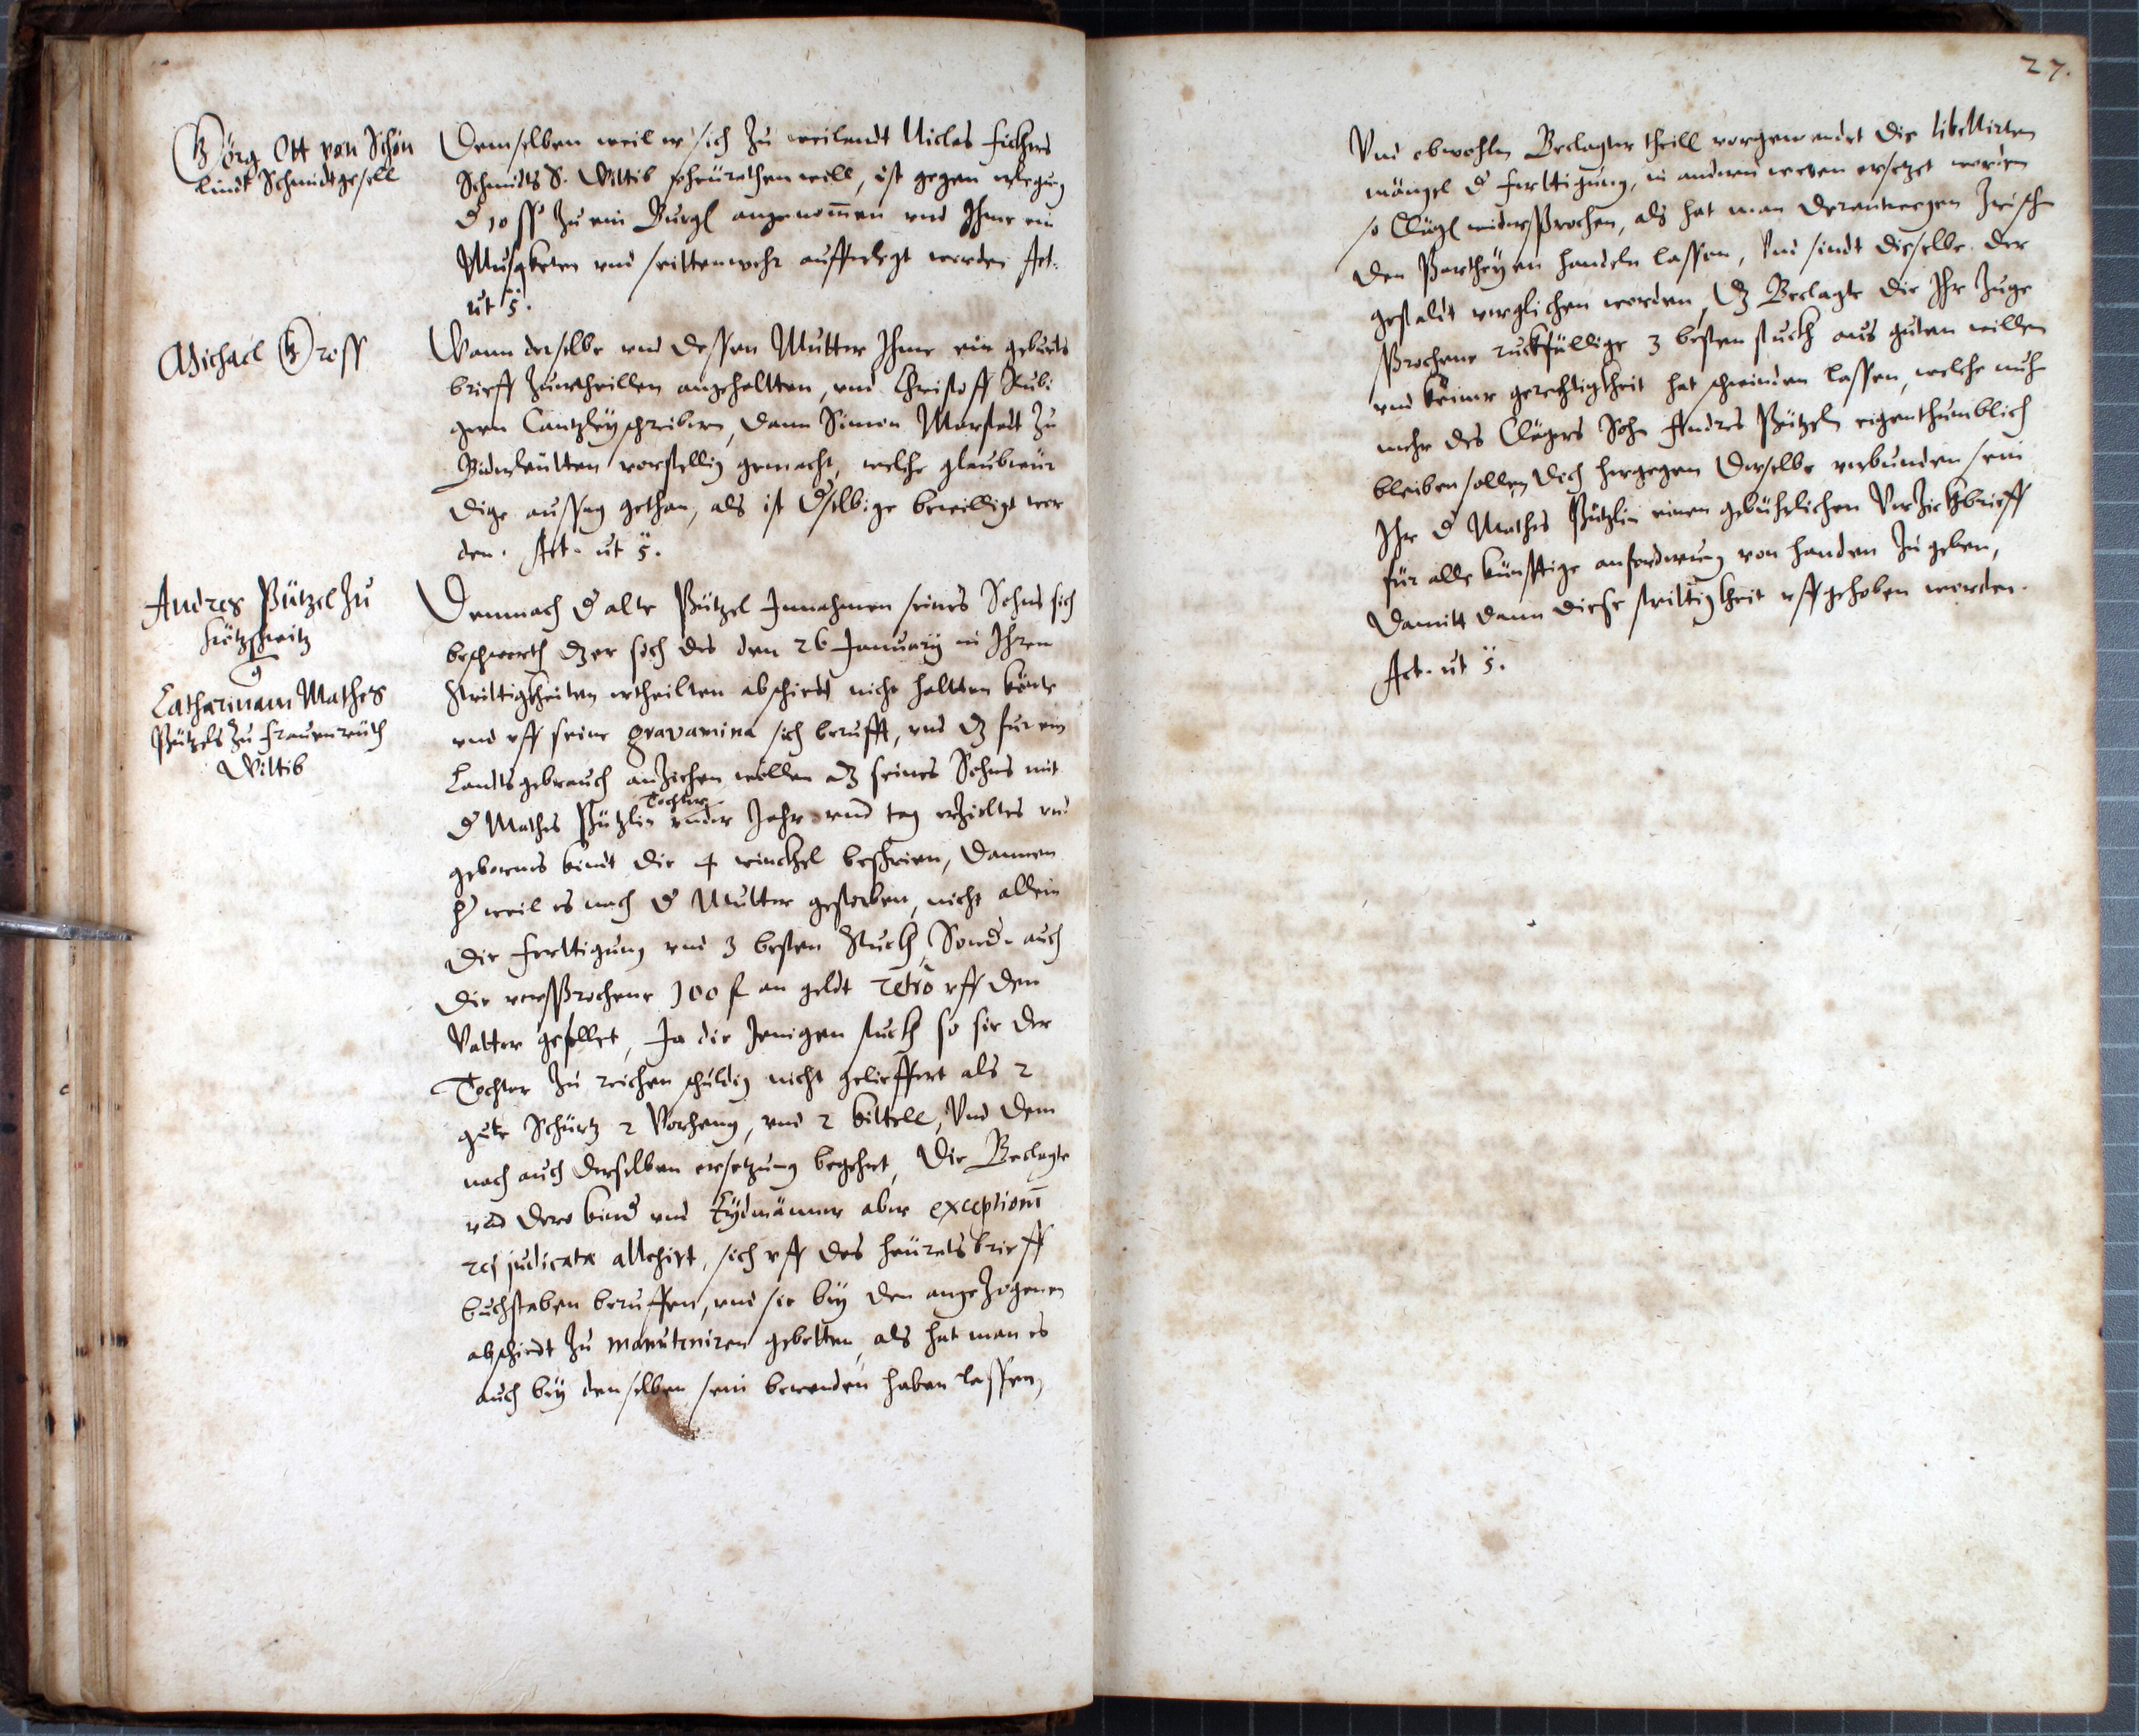 Görg Ott von Schön
lindt Schmidtgesell
Demselben weil er sich zu weilandt Niclas Fickers
Schmidts S. Wittib verheürathen will, ist gegen erlegung
d 10 ß zu ein Burgl angenom̃en vnd Ihme ein
Musqketen vnd seittenwehr aufferlegt worden Act.
ut s̈.
Michael Gross
Wann derselbe vnd dessen Mutter Ihme ein geburts
brieff zuertheillen angehaltten, vnd Christoff Rubi
gern Cantzleyschreibern, dann Simon Marstadt zu
Gidersleutten vorstellig gemacht, welche glaubwür
dige aussag gethan, als ist dselbige bewilligt wor
den. Act. ut s̈.
Andres Pützel zu
Kötschwitz
Catharinam Mathes
Pützels zu Frauenreüth
Wittib
Demnach d alte Pützel Innahmen seines Sohns sich
beschwerth dz er sich des den 26 January in Ihren
Strittigkheiten ertheilten abschiedt nicht haltten könte
vnd vff seine gravamina sich berufft, vnd dz fur ein
Landtsgebrauch anziehen wollen dz seines Sohns mit
d Mathes Pützlin Tochter vnder Jahr vnd tag erzieltes vnd
gebornes kindt die 4 winckhel beschrien, dannen
weil es nach d Mutter gestorben, nicht allein
die ferttigung vnd 3 besten Stuckh, Sond. auch
die versprochene 100 f an geldt retro vff den
Vatter gefellet, Ja die Jenigen stuckh so sie der
Tochter zu reichen schuldig nicht gelieffert als 2
gute Schürtz 2 Vorheng, vnd 2 kittell, Vnd dem
nach auch derselben ersetzung begehrt, Die Beclagte
vnd dero kind vnd Eydmänner aber exceptionē
rei judicatæ allegirt, sich vff des heürats brieff
buchstaben beruffen, vnd sie bey den angezogenen
abschiedt zu manuteniren gebetten, als hat man es
auch bey denselben sein bewenden haben lassen,
27.
Vnd obwohln Beclagter theill vorgewendet die libellirten
mängel d ferttigung, in andern wegen ersetzet worden
so Clägl widersprochen, als hat man derentwegen zwisch
den Partheyen handeln lassen, Vnd sindt dieselbe der
gestaldt verglichen worden, dz Beclagte die Ihr zuge
sprochene ruckfällige 3 besten stuckh aus guten willen
vnd keiner gerechtigkheit hat schwinden lassen, welche nuh
mehr des Clägers Sohn Andres Pützeln eigenthumblich
bleiben sollen, doch hergegen derselbe verbunden sein
Ihr d Mathes Pützlin einen gebührlichen Verzichtbrieff
für alle künfftige anforderung von handen zu geben,
Damitt dann diese strittigkheit vffgehoben worden.
Act. ut s̈.